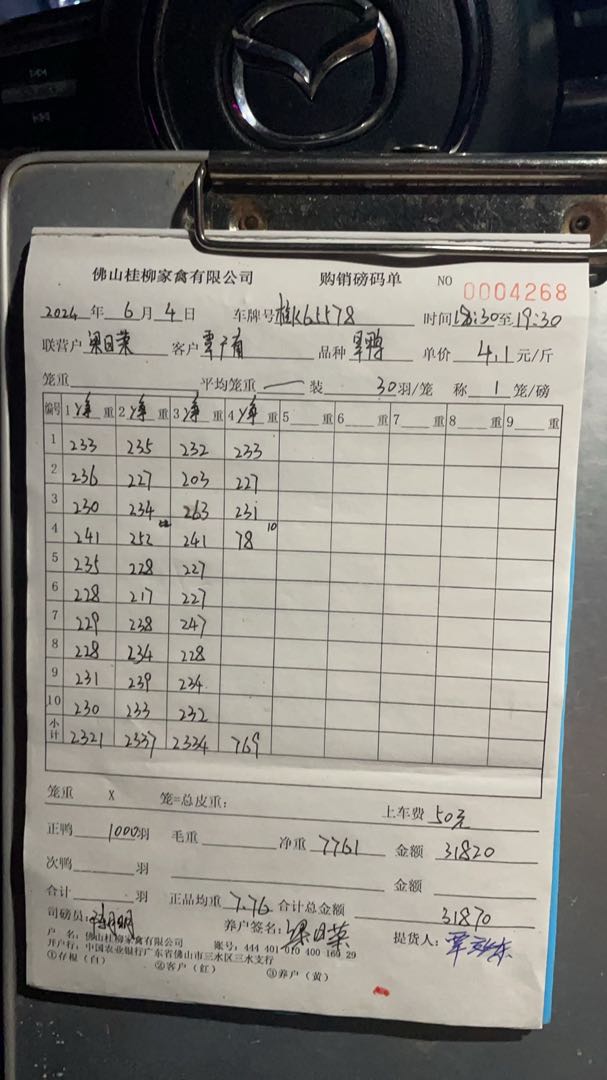 佛山桂柳家禽有限公司 购销磅码单 NO 0004268
2024 年 6 月 4 日 车牌号 桂K65578 时间 18:30至19:30
联营户 梁日荣 客户 覃广有 品种 单价 4.1 元/斤
笼重 平均笼重 — 装 30 羽/笼 称 1 笼/磅
编号 1 净 重 2 净 重 3 净 重 4 净 重 5 重 6 重 7 重 8 重 9 重
1 233 235 232 233
2 236 227 203 227
3 230 234 263 231
4 241 252 241 78 10
5 235 228 227
6 228 217 227
7 229 238 247
8 228 234 228
9 231 239 234
10 230 233 232
小计 2321 2337 2334 769
笼重 X 笼=总皮重： 上车费 50元
正鸭 1000 羽 毛重 净重 7761 金额 31820
次鸭 羽 金额
合计 羽 正品均重 7.76 合计总金额 31870
司磅员: 养户签名: 梁日荣 提货人:
户 名: 佛山桂柳家禽有限公司 账号: 444 401 010 400 169 29
开户行: 中国农业银行广东省佛山市三水区三水支行
①存根（白） ②客户（红） ③养户（黄）